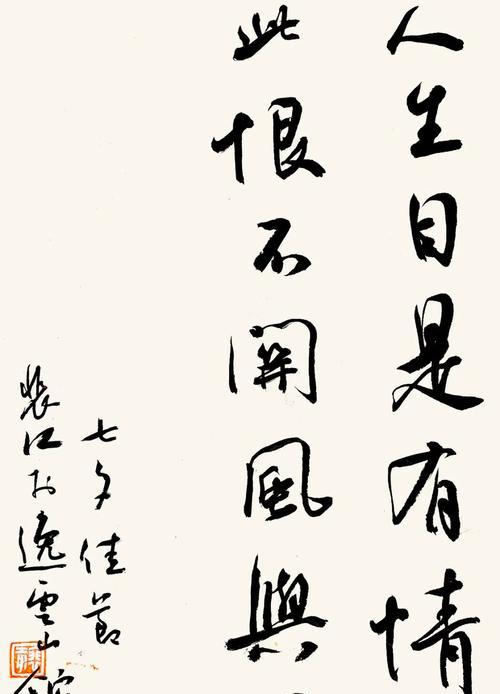 人生自是有情
此恨不關風與
七夕佳節
裴江於逸雲山館